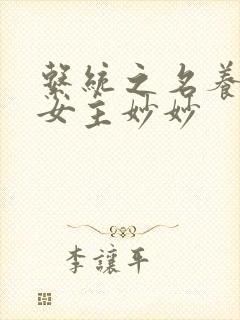 繫統之名養
女主妙妙
李讓平